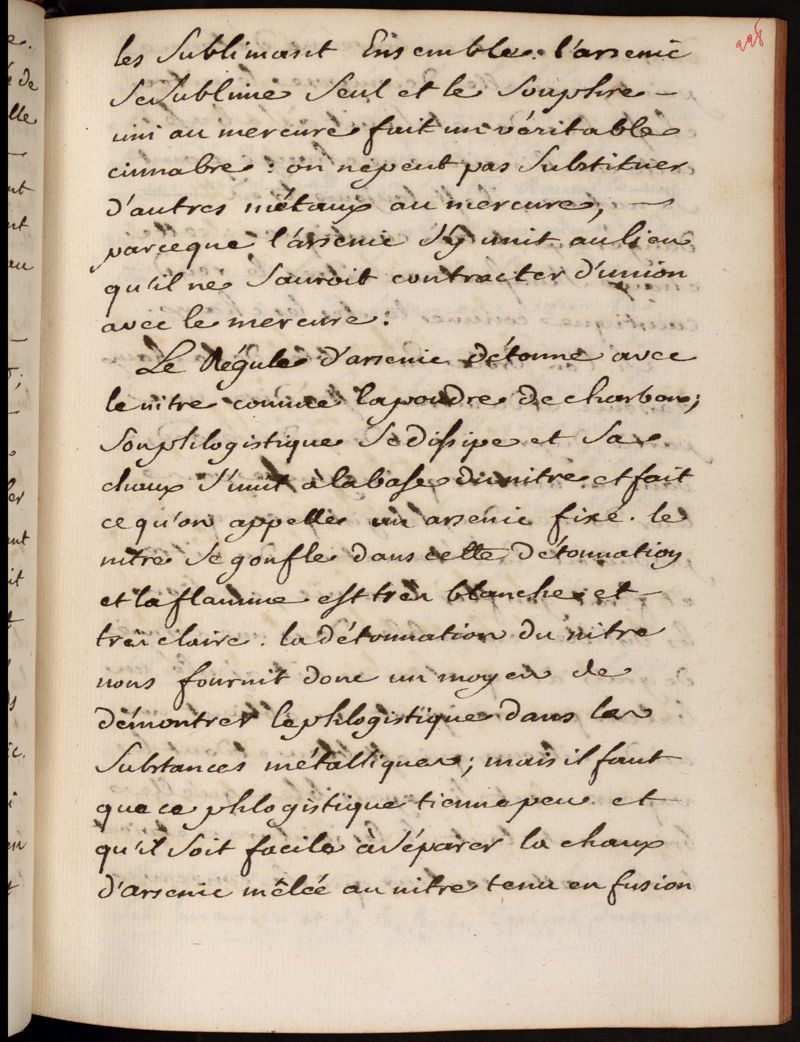 228
les Sublimant Ensemble. l'arsenic
se Sublime Seul et le Souphre –
uni au mercure fait un véritable
cinnabre : on ne peut pas Substituer
d'autres métaux au mercure, –
parceque l'arsenic s'y unit au lieu
qu'il ne Sauroit contracter d'union
avec le mercure :
Le Régule d'arsenic détonne avec
le nitre comme la poudre de charbon ;
Son phlogistique Se dissipe et Sa
chaux S'unit à la base du nitre et fait
ce qu'on appelle un arsenic fixé. le
nitre Se gonfle dans cette détonnation
et la flamme est tres blanche et –
tres claire. la détonnation du nitre
nous fournit donc un moyen de
démontrer le phlogistique dans les
Substances métalliques ; mais il faut
que ce phlogistique tienne peu et
qu'il Soit facile à Séparer la chaux
d'arsenic mêlée au nitre tenu en fusion